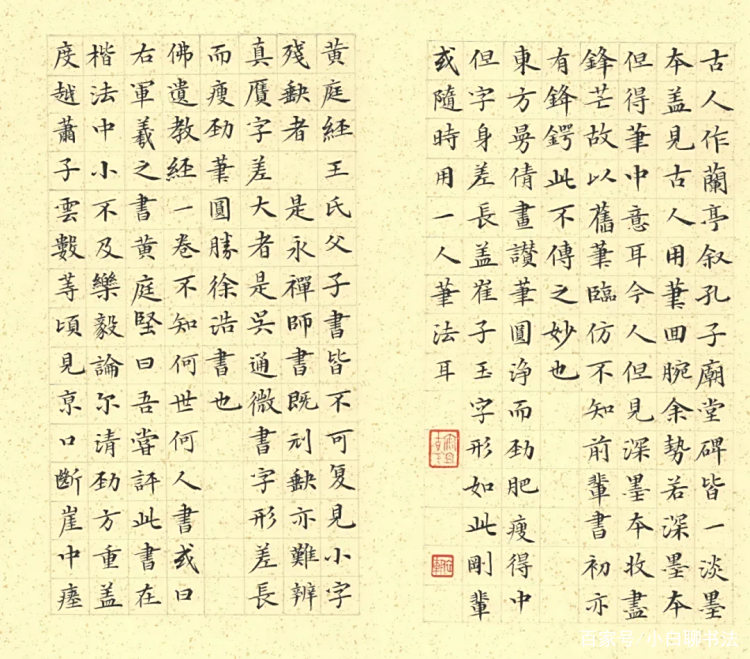 古人作蘭亭叙孔子廟堂碑皆一淡墨
本盖見古人用筆回腕余勢若深墨本
但得筆中意耳今人但見深墨本收盡
鋒芒故以舊筆臨仿不知前輩書初亦
有鋒鍔此不傳之妙也
東方曼倩畫讃筆圓浄而劲肥瘦得中
但字身差長盖崔子玉字形如此剛輩
或隨時用一人筆法耳
黄庭經王氏父子書皆不可复見小字
残缺者 是永禪師書既刓缺亦難辨
真贋字差大者是吳通微書字形差長
而瘦劲筆圓勝徐浩書也
佛遺教經一卷不知何世何人書或曰
右軍羲之書黄庭堅曰吾嘗評此書在
楷法中小不及樂毅論尔清劲方重盖
度越蕭子雲數等頃見京口斷崖中瘞
百家号/小白聊书法